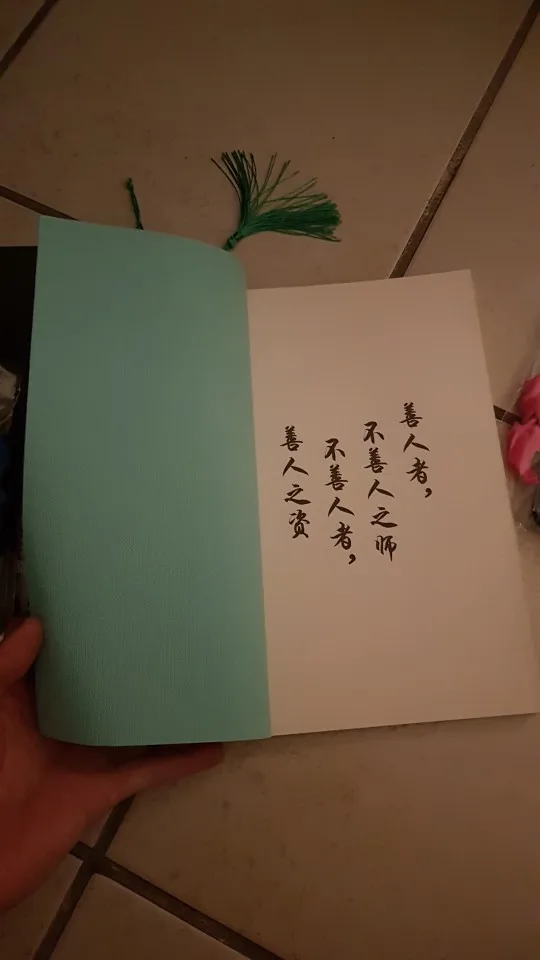 善人者，
不善人之师
不善人者，
善人之资